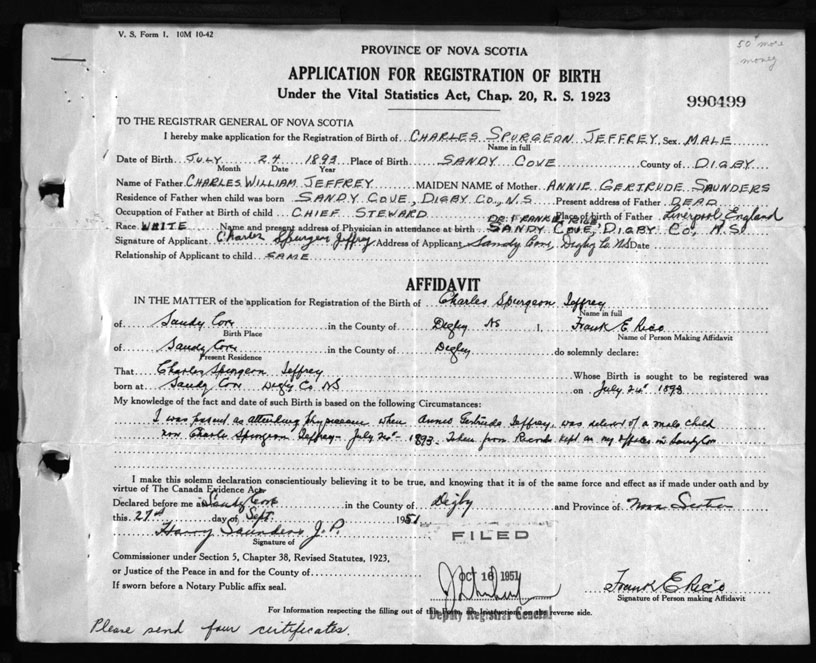 V. S. Form 1. 10M 10-42
50¢ more
money
PROVINCE OF NOVA SCOTIA
APPLICATION FOR REGISTRATION OF BIRTH
Under the Vital Statistics Act, Chap. 20, R. S. 1923
990499
TO THE REGISTRAR GENERAL OF NOVA SCOTIA
I hereby make application for the Registration of Birth of CHARLES SPURGEON JEFFREY Sex MALE
Name in full
Date of Birth JULY 24 1893 Place of Birth SANDY COVE County of DIGBY
Month Date Year
Name of Father CHARLES WILLIAM JEFFREY MAIDEN NAME of Mother ANNIE GERTRUDE SAUNDERS
Residence of Father when child was born SANDY COVE, DIGBY CO., N.S. Present address of Father DEAD
Occupation of Father at Birth of child CHIEF STEWARD Place of birth of Father Liverpool, England
DR. FRANK E. RICE
Race WHITE Name and present address of Physician in attendance at birth SANDY COVE, DIGBY CO, N.S.
Signature of Applicant Charles Spurgeon Jeffrey Address of Applicant Sandy Cove, Digby Co. NS Date
Relationship of Applicant to child SAME
AFFIDAVIT
IN THE MATTER of the application for Registration of the Birth of Charles Spurgeon Jeffrey
Name in full
of Sandy Cove in the County of Digby NS I, Frank E Rice
Birth Place Name of Person Making Affidavit
of Sandy Cove in the County of Digby do solemnly declare:
Present Residence
That Charles Spurgeon Jeffrey Whose Birth is sought to be registered was
born at Sandy Cove Digby Co NS on July 24th 1893
My knowledge of the fact and date of such Birth is based on the following Circumstances:
I was present as attending physician when Annie Gertrude Jeffrey, was deliver of a male child
now Charles Spurgeon Jeffrey - July 24th - 1893. Taken from Records kept in my office in Sandy Cove
I make this solemn declaration conscientiously believing it to be true, and knowing that it is of the same force and effect as if made under oath and by
virtue of The Canada Evidence Act.
Declared before me at Sandy Cove in the County of Digby and Province of Nova Scotia
this 27th day of Sept. 1951
Harry Saunders J. P.
Signature of
FILED
Commissioner under Section 5, Chapter 38, Revised Statutes, 1923,
or Justice of the Peace in and for the County of
OCT 16 1951
If sworn before a Notary Public affix seal.
Frank E Rice
Signature of Person making Affidavit
Deputy Registrar General
For Information respecting the filling out of this Form, see Instruction on the reverse side.
Please send four certificates.